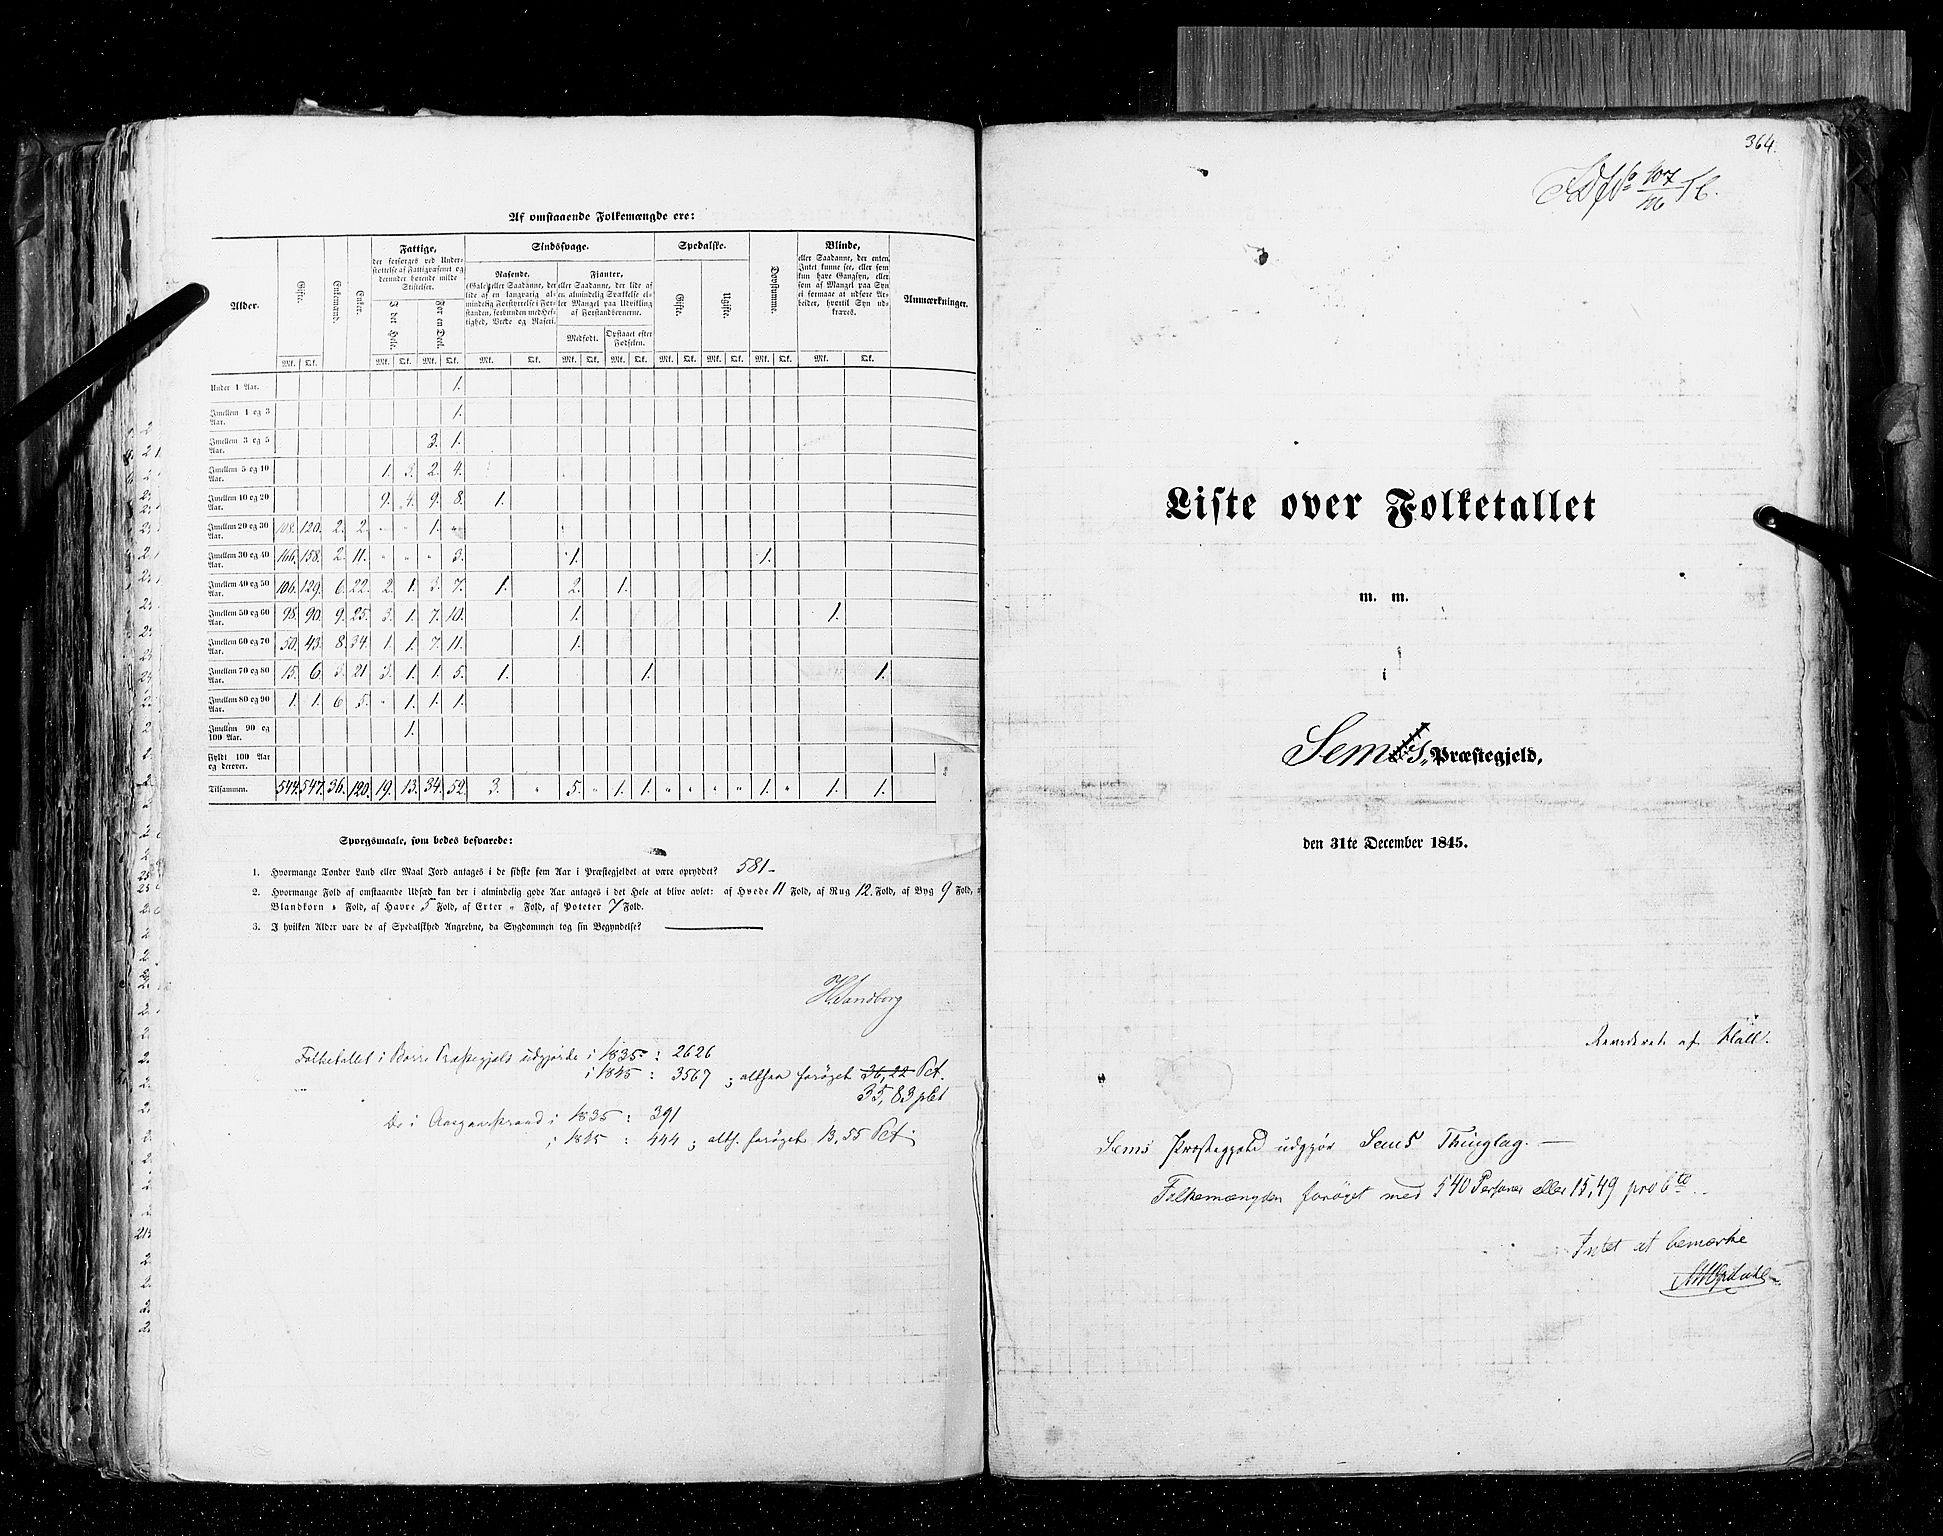 Af omstaaende Folkemængde ere:
Alder. Gifte. Enkemænd. Enker. Fattige, Sindssvage. Spedalske. Døvstumme. Blinde, Anmærkninger.
der forsørges ved Under-
støttelse af Fattigvæsenet og
derunder hørende milde
Stiftelser.
I det Hele. For en Deel.
Rasende.
(Gale) eller Saadanne, der
lide af en langvarig al-
mindelig Forstyrrelse i For-
standen, forbunden med Hef-
tighed, Vrede og Raseri.
Fjanter,
eller Saadanne, der lide af
en almindelig Svækkelse el-
ler Mangel paa Udvikling
af Forstandsevnerne.
Medfødt. Opstaaet efter Fødselen.
Gifte. Ugifte.
eller Saadanne, der enten
Intet kunne see, eller som
kun have Gangsyn, eller
som af Mangel paa Syn
ei formaae at udføre Ar-
beider, hvortil Syn ud-
kræves.
Mk. Qk. Mk. Qk. Mk. Qk. Mk. Qk. Mk. Qk. Mk. Qk. Mk. Qk. Mk. Qk. Mk. Qk. Mk. Qk.
Under 1 Aar. 1.
Imellem 1 og 3 Aar. 1.
Imellem 3 og 5 Aar. 3. 1.
Imellem 5 og 10 Aar. 1. 3. 2. 4.
Imellem 10 og 20 Aar. 9. 4. 9. 8. 1.
Imellem 20 og 30 Aar. 108. 120. 2. 2. " " 1. "
Imellem 30 og 40 Aar. 166. 158. 2. 11. " " " 3. 1. 1.
Imellem 40 og 50 Aar. 106. 129. 6. 22. 2. 1. 3. 7. 1. 2. 1.
Imellem 50 og 60 Aar. 98. 90. 9. 25. 3. 1. 7. 10. 1. 1.
Imellem 60 og 70 Aar. 50. 43. 8. 34. 1. 1. 7. 11. 1.
Imellem 70 og 80 Aar. 15. 6. 3. 21 3. 1. 1. 5. 1. 1. 1.
Imellem 80 og 90 Aar. 1. 1. 6 5. " 1. 1. 1.
Imellem 90 og 100 Aar. 1.
Fyldt 100 Aar og derover.
Tilsammen. 544. 547. 36. 120. 19. 13. 34. 52. 3. " 5. " 1. 1. " " " " 1. " 1. 1.
Spørgsmaale, som bedes besvarede:
1. Hvormange Tønder Land eller Maal Jord antages i de sidste fem Aar i Præstegjeldet at være opryddet? 581-
2. Hvormange Fold af omstaaende Udsæd kan der i almindelig gode Aar antages i det Hele at blive avlet: af Hvede 11 Fold, af Rug 12. Fold, af Byg 9 Fold,
Blandkorn " Fold, af Havre 5 Fold, af Erter " Fold, af Poteter 7 Fold.
3. I hvilken Alder vare de af Spedalskhed Angrebne, da Sygdommen tog sin Begyndelse?
H. Sandborg
Folketallet i Borre Præstegjeld udgjorde i 1835 : 2626
i 1845 : 3567 ; altsaa forøget 36,22 Pct.
35,83 pCt
Do i Aasgaardstrand i 1835 : 391
i 1845 : 444 ; alts. forøget 13,55 Pct.
364.
107
Liste over Folketallet
m. m.
i
Sems Præstegjeld,
den 31te December 1845.
Revideret af Hall.
Sems Præstegjeld udgjør Sems Thinglag. —
Folkemængden forøget med 540 Personer eller 15,49 pro Cto.
Intet at bemærke